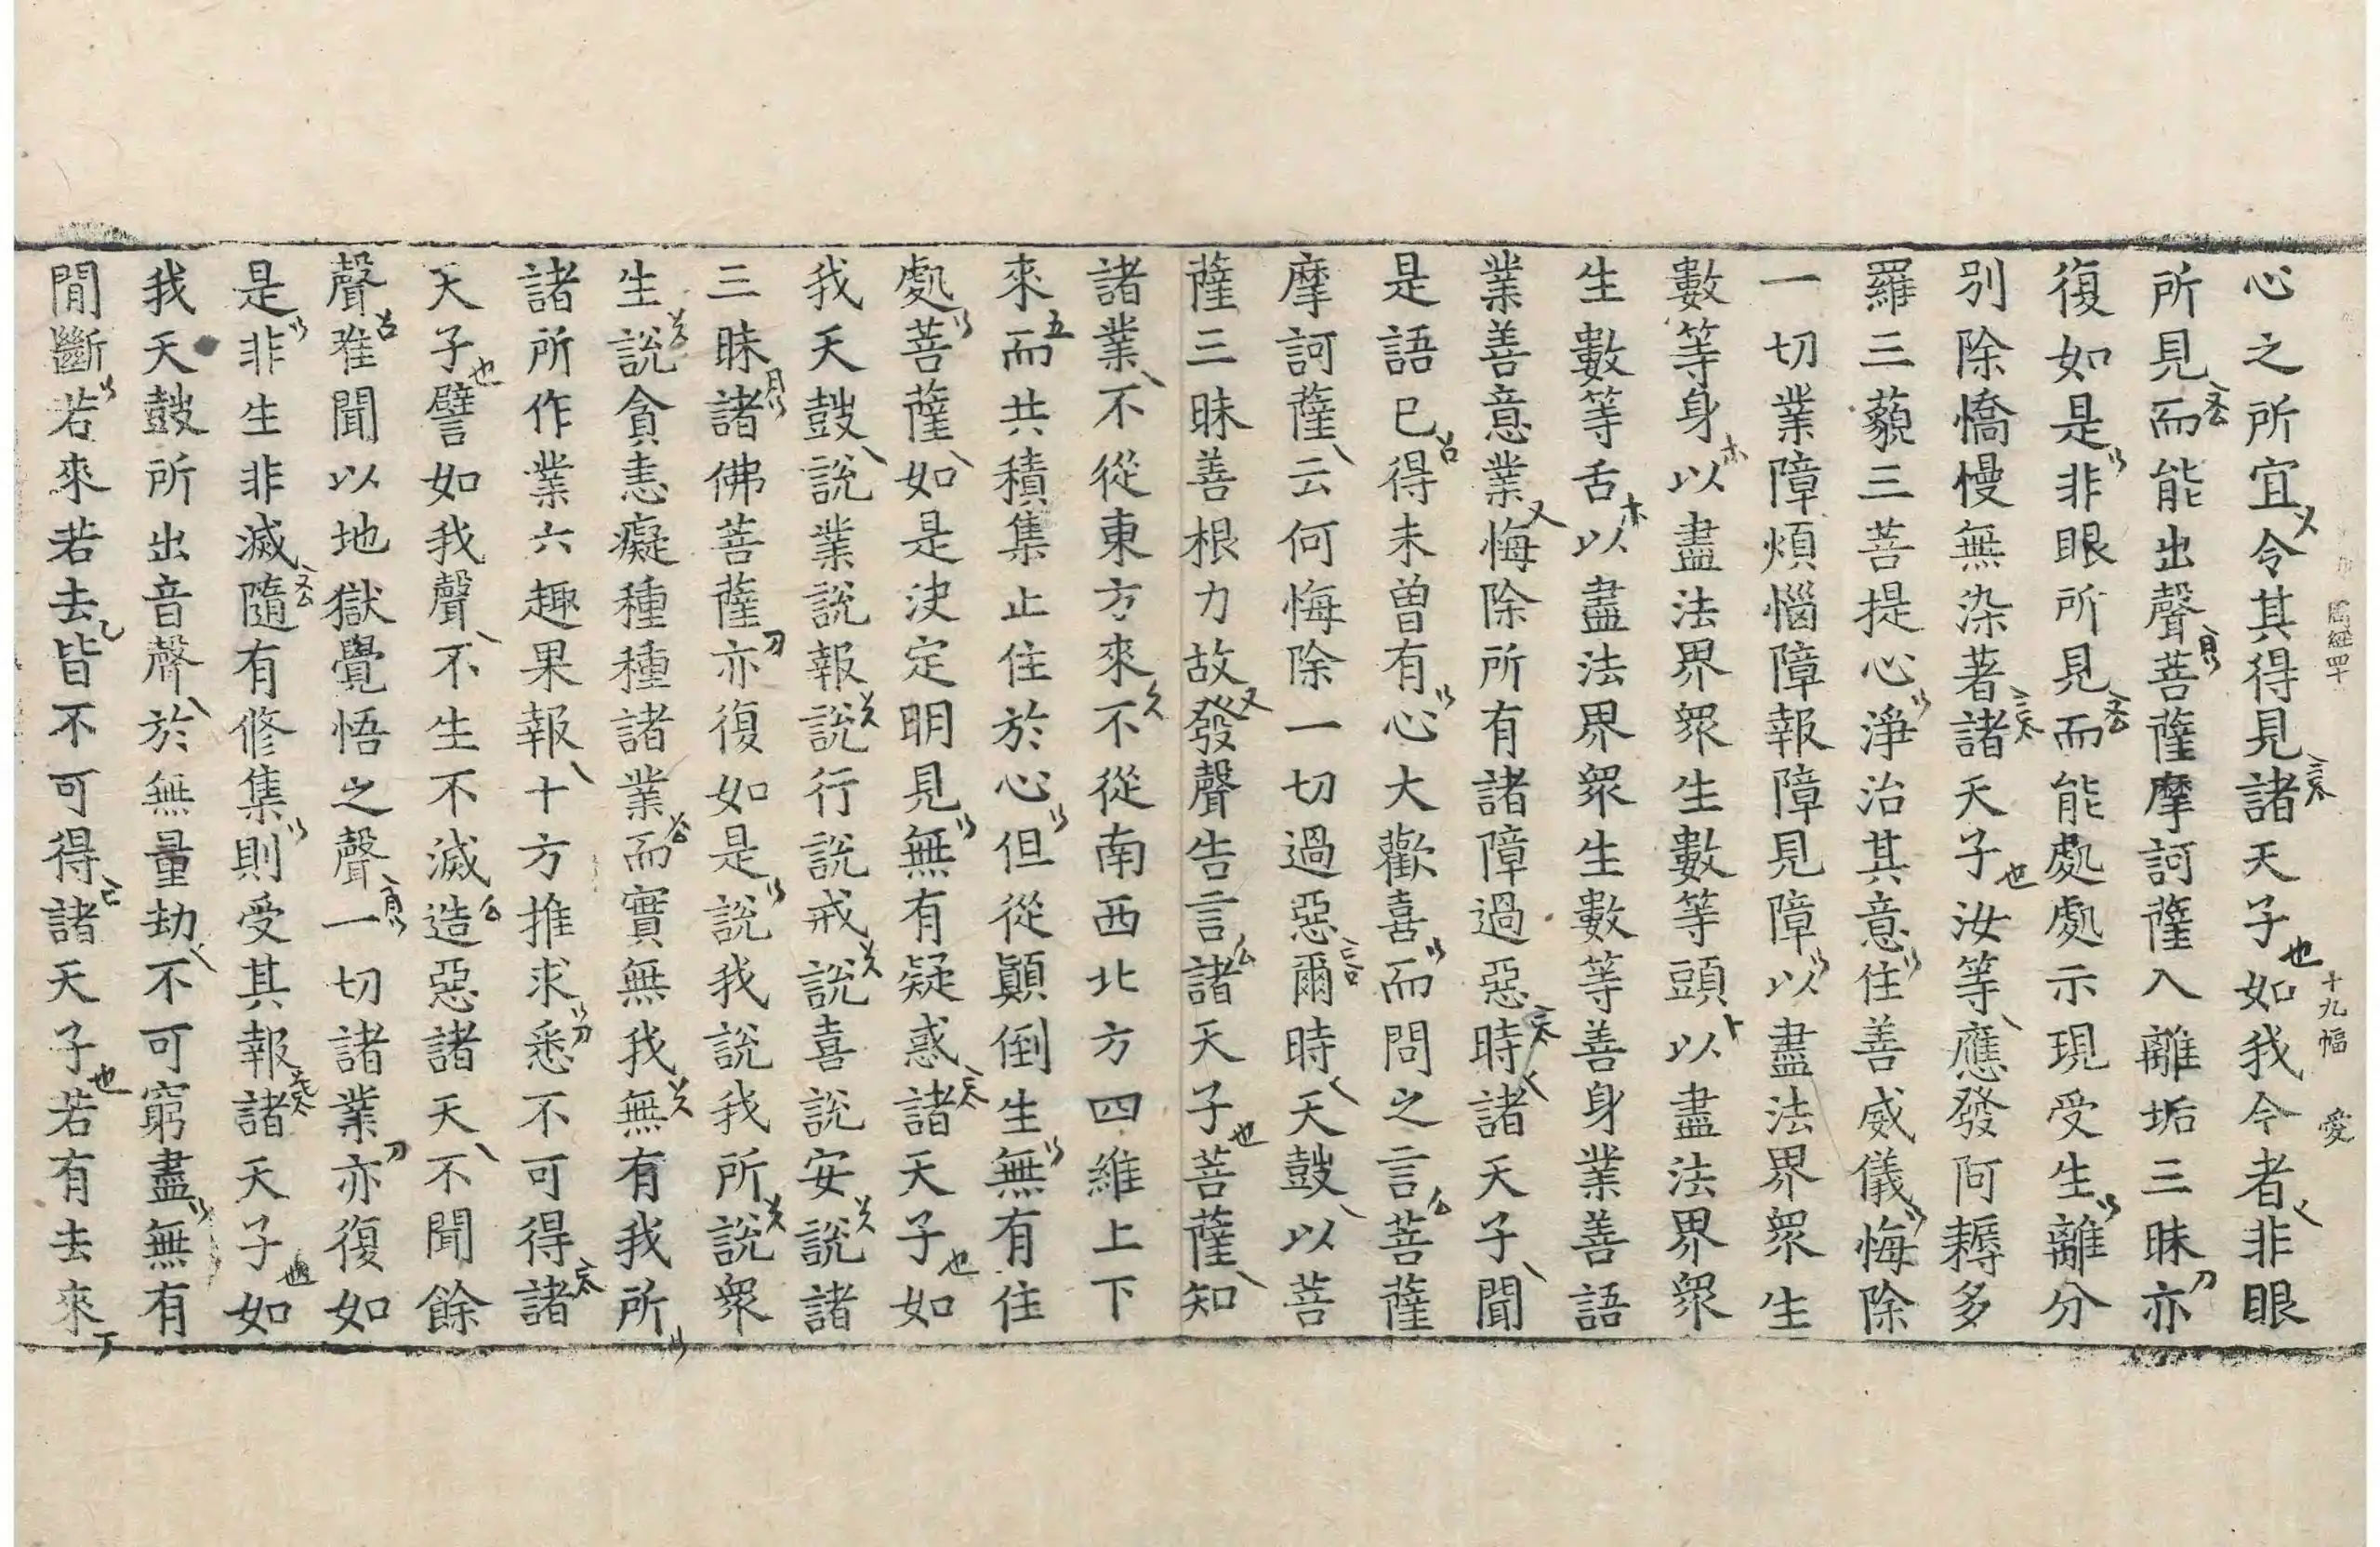 心之所宜令其得見諸天子如我今者非眼
所見而能出聲菩薩摩訶薩入離垢三昧亦
復如是非眼所見而能處處示現受生離分
別除憍慢無染著諸天子汝等應發阿耨多
羅三藐三菩提心淨治其意住善威儀悔除
一切業障煩惱障報障見障以盡法界眾生
數等身以盡法界眾生數等頭以盡法界眾
生數等舌以盡法界眾生數等善身業善語
業善意業悔除所有諸障過惡時諸天子聞
是語已得未曾有心大歡喜而問之言菩薩
摩訶薩云何悔除一切過惡爾時天鼓以菩
薩三昧善根力故發聲告言諸天子菩薩知
諸業不從東方來不從南西北方四維上下
來而共積集止住於心但從顛倒生無有住
處菩薩如是決定明見無有疑惑諸天子如
我天鼓說業說報說行說戒說喜說安說諸
三昧諸佛菩薩亦復如是說我說我所說眾
生說貪恚癡種種諸業而實無我無有我所
諸所作業六趣果報十方推求悉不可得諸
天子譬如我聲不生不滅造惡諸天不聞餘
聲唯聞以地獄覺悟之聲一切諸業亦復如
是非生非滅隨有修集則受其報諸天子如
我天鼓所出音聲於無量劫不可窮盡無有
間斷若來若去皆不可得諸天子若有去來
十九幅 愛